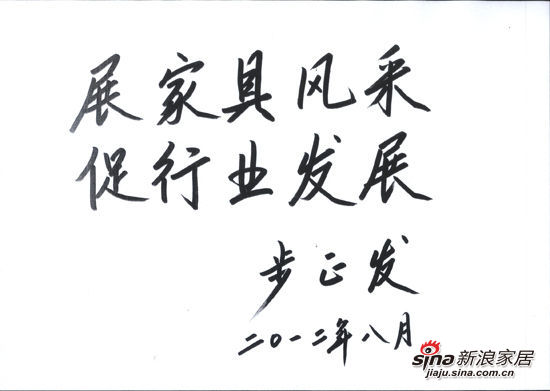 展家具风采
促行业发展
步正发
二〇一二年八月
sina新浪家居
jiaju.sina.com.cn